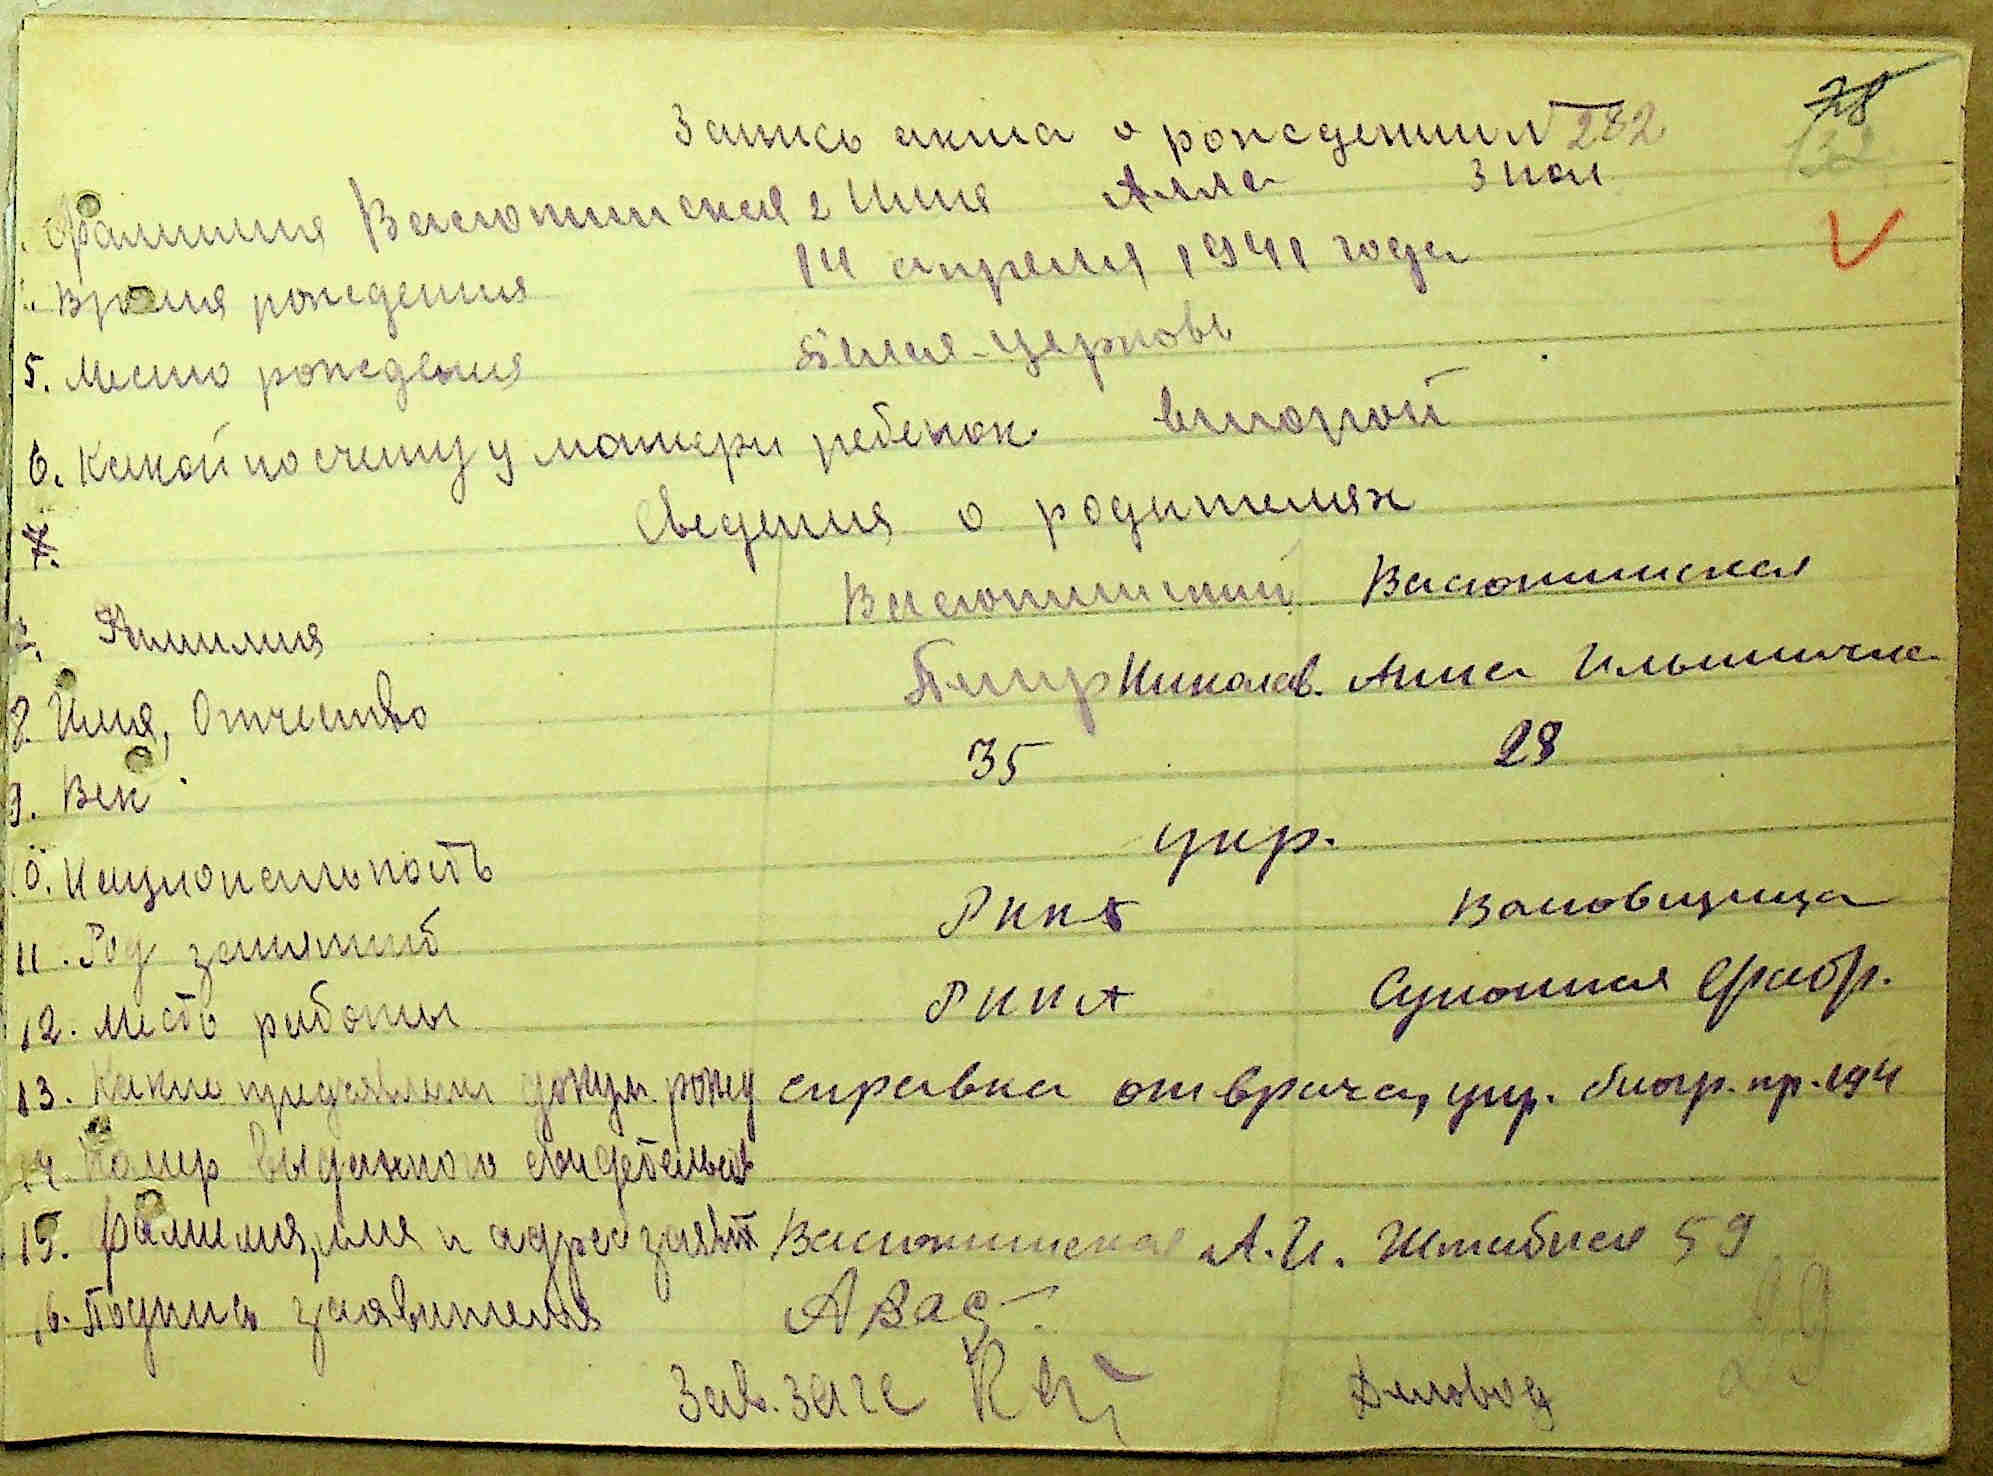 78
132
Запись акта о рождении № 282
Фамилия Васютинская 2 Имя Алла 3 пол
4. Время рождения 14 апреля 1941 года
5. Место рождения Белая-церковь
6. Какой по счету у матери ребенок второй
7. Сведения о родителях
Фамилия Васютинский Васютинская
8. Имя, Отчество Пётр Николаев. Анна Ильинична
9. Век 35 28
10. Национальность укр.
11. Род занятий РККА
12. Место работы РККА Суконная фабр.
13. Какие предъявлен докум. рожд справка от врача, укр.
14. Номер выданного свидетельст
15. Фамилия, имя и адрес заявит Васютинская А.И. Штабная 59
16. Подпись заявителя АВас
Зав. загс Деловод
29